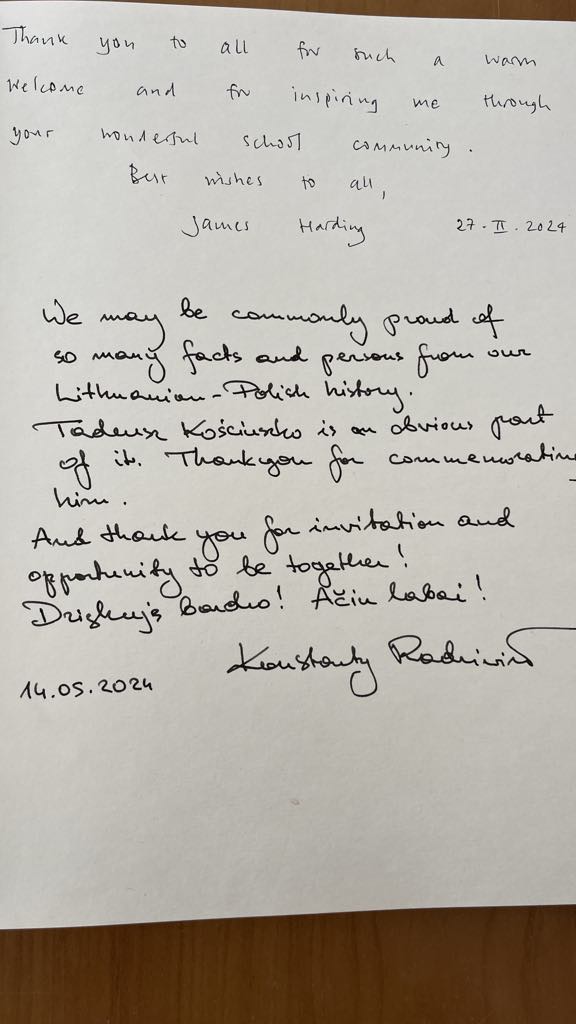 Thank you to all for such a warm
welcome and for inspiring me through
your wonderful school community.
Best wishes to all,
James Harding 27. II. 2024
We may be commonly proud of
so many facts and persons from our
Lithuanian-Polish history.
Tadeusz Kościuszko is an obvious part
of it. Thank you for commemorating
him.
And thank you for invitation and
opportunity to be together!
Dziękuję bardzo! Ačiu labai!
Konstanty Radziwiłł
14.05.2024